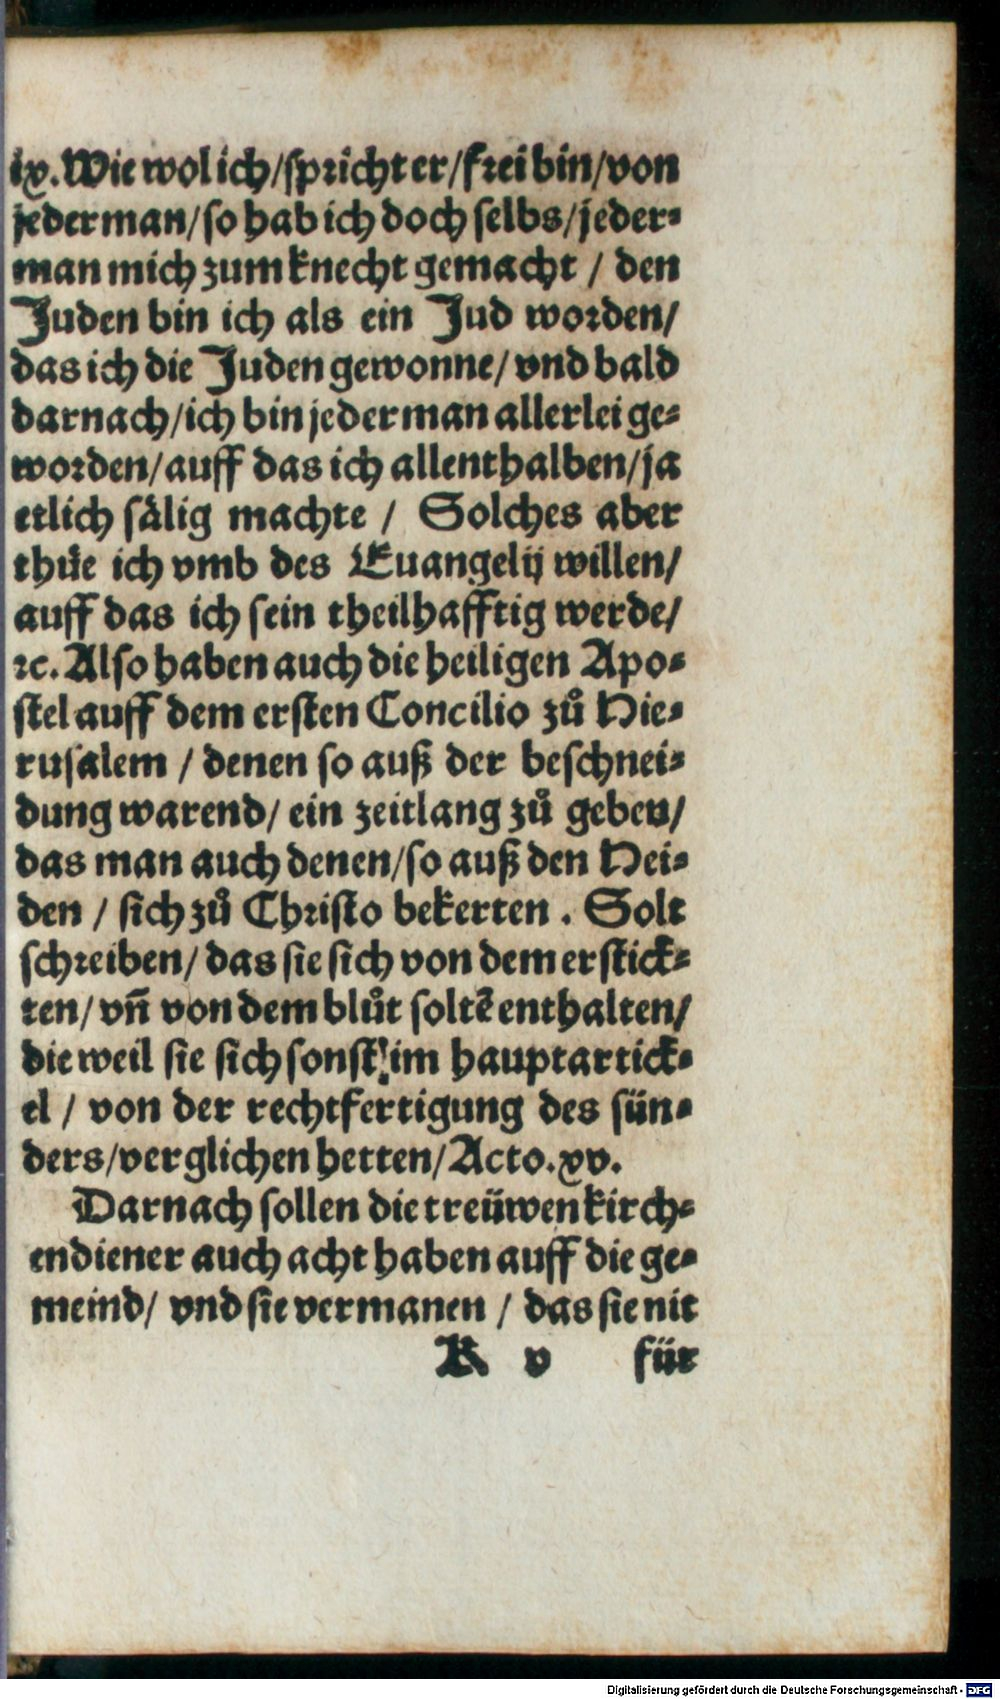 ix. Wie wol ich/ spricht er/ frei bin/ von
jederman/ so hab ich doch selbs/ jeder⸗
man mich zum knecht gemacht / den
Juden bin ich als ein Jud worden/
das ich die Juden gewonne/ vnd bald
darnach/ ich bin jederman allerlei ge⸗
worden/ auff das ich allenthalben/ ja
etlich sälig machte / Solches aber
thuͤe ich vmb des Euangelij willen/
auff das ich sein theilhafftig werde/
ꝛc. Also haben auch die heiligen Apo⸗
stel auff dem ersten Concilio zuͦ Hie⸗
rusalem / denen so auß der beschnei⸗
dung warend/ ein zeitlang zuͦ geben/
das man auch denen/ so auß den Hei⸗
den / sich zuͦ Christo bekerten . Solt
schreiben/ das sie sich von dem erstick⸗
ten/ vñ von dem bluͦt soltẽ enthalten/
die weil sie sich sonst im hauptartick⸗
el / von der rechtfertigung des sün⸗
ders/ verglichen hetten/ Acto. xv.
Darnach sollen die treüwen kirch⸗
endiener auch acht haben auff die ge⸗
meind/ vnd sie vermanen / das sie nit
K v für
Digitalisierung gefördert durch die Deutsche Forschungsgemeinschaft - DFG